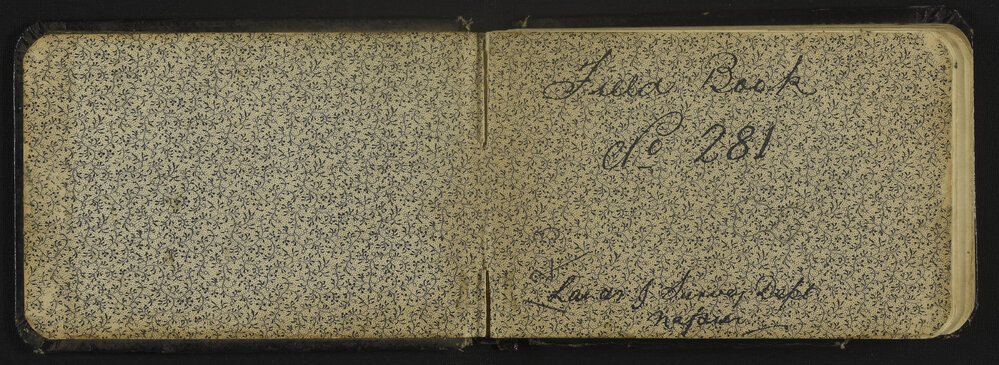 Field Book
No 281
Lands & Survey Dept
Napier